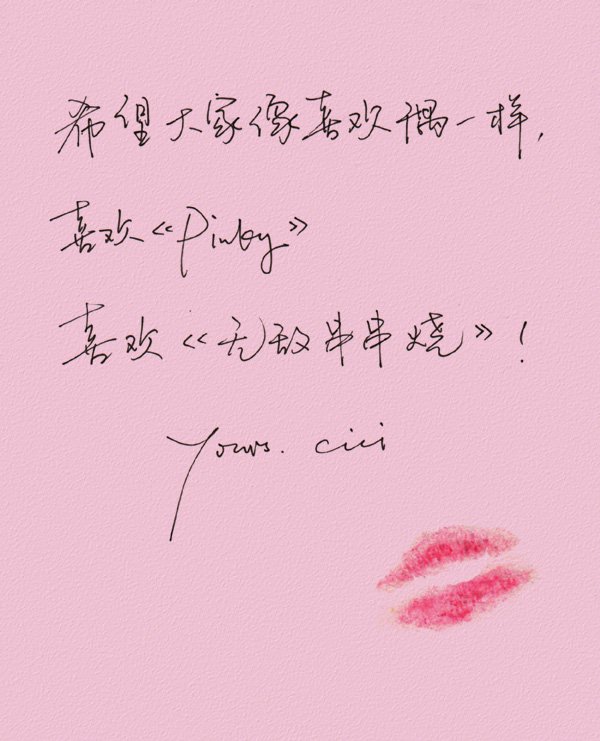 希望大家像喜欢偶一样,
喜欢《Pinky》
喜欢《无敌串串烧》!
Yours. cici